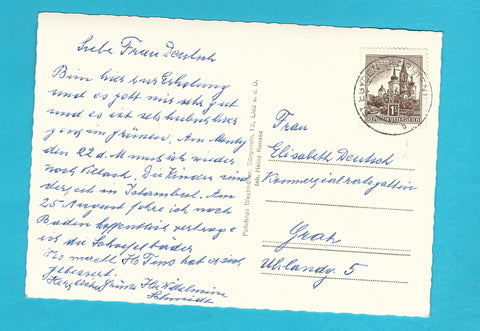 Liebe Frau Deutsch
Bin hier zur Erholung
und es geht mir sehr gut
und es ist sehr ruhig hier
ganz im grünen. Am Montag
den 22 d. M muß ich wieder
nach Villach. Die Kinder sind
derzeit in Istambul. Am
25 August fahre ich nach
Baden hoffentlich vertrage
ich die Schwefelbäder
Was macht H. Tino hat er sich
gebessert.
Herzliche Grüße Ihre Wilhelmine
Schmidt
Fotohaus Linz a. d. D.
Inh. Heinz
REPUBLIK ÖSTERREICH
Frau
Elisabeth Deutsch
Kommerzialratsgattin
Graz
Uhlandg. 5